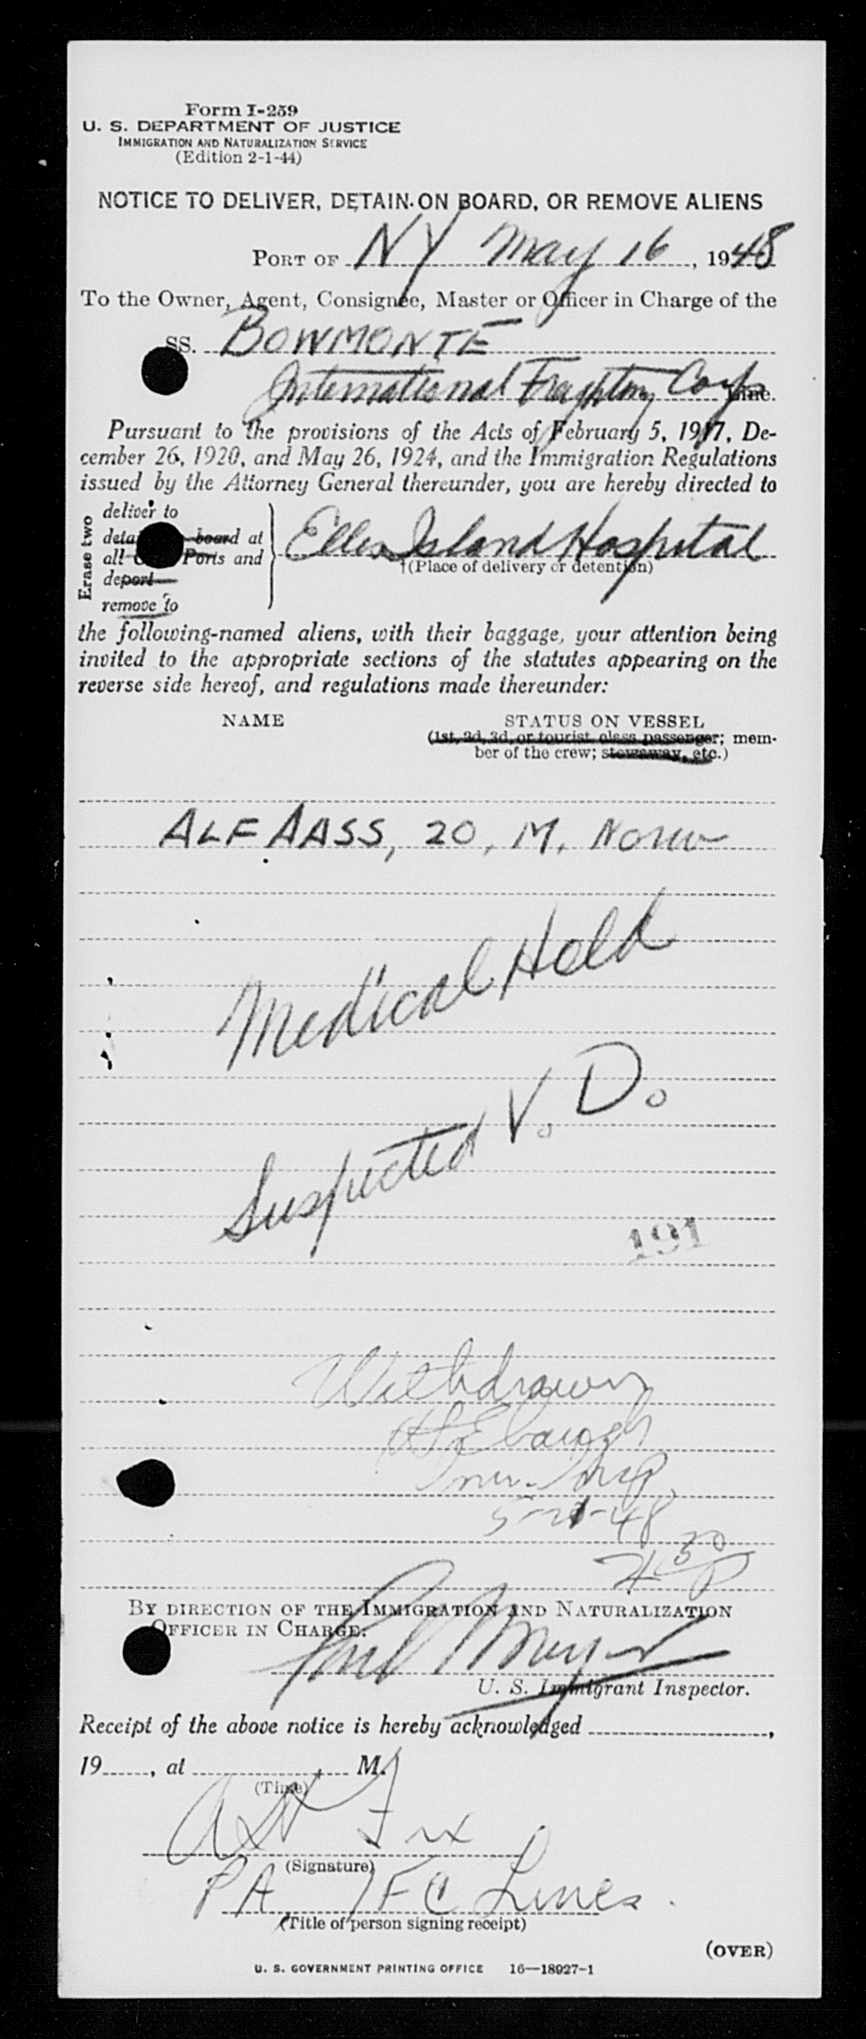 Form I-259
U. S. DEPARTMENT OF JUSTICE
IMMIGRATION AND NATURALIZATION SERVICE
(Edition 2-1-44)
NOTICE TO DELIVER, DETAIN ON BOARD, OR REMOVE ALIENS
PORT OF NY May 16, 1948
To the Owner, Agent, Consignee, Master or Officer in Charge of the
SS. BOWMONTE
International Corp Line.
Pursuant to the provisions of the Acts of February 5, 1917, De-
cember 26, 1920, and May 26, 1924, and the Immigration Regulations
issued by the Attorney General thereunder, you are hereby directed to
Erase two
deliver to
board at
all Ports and
deport
remove to
Ellis Island Hospital
†(Place of delivery or detention)
the following-named aliens, with their baggage, your attention being
invited to the appropriate sections of the statutes appearing on the
reverse side hereof, and regulations made thereunder:
NAME STATUS ON VESSEL
(1st, 2d, 3d, or tourist class passenger; mem-
ber of the crew; stowaway, etc.)
ALF AASS, 20, M. Norw
Medical Hold
Suspected V. D.
191
Withdrawn
5-21-48
4:30 P
BY DIRECTION OF THE IMMIGRATION AND NATURALIZATION
OFFICER IN CHARGE:
U. S. Immigrant Inspector.
Receipt of the above notice is hereby acknowledged ,
19 , at M.
(Time)
(Signature)
PA IFC Lines.
(Title of person signing receipt)
(OVER)
U. S. GOVERNMENT PRINTING OFFICE 16—18927-1